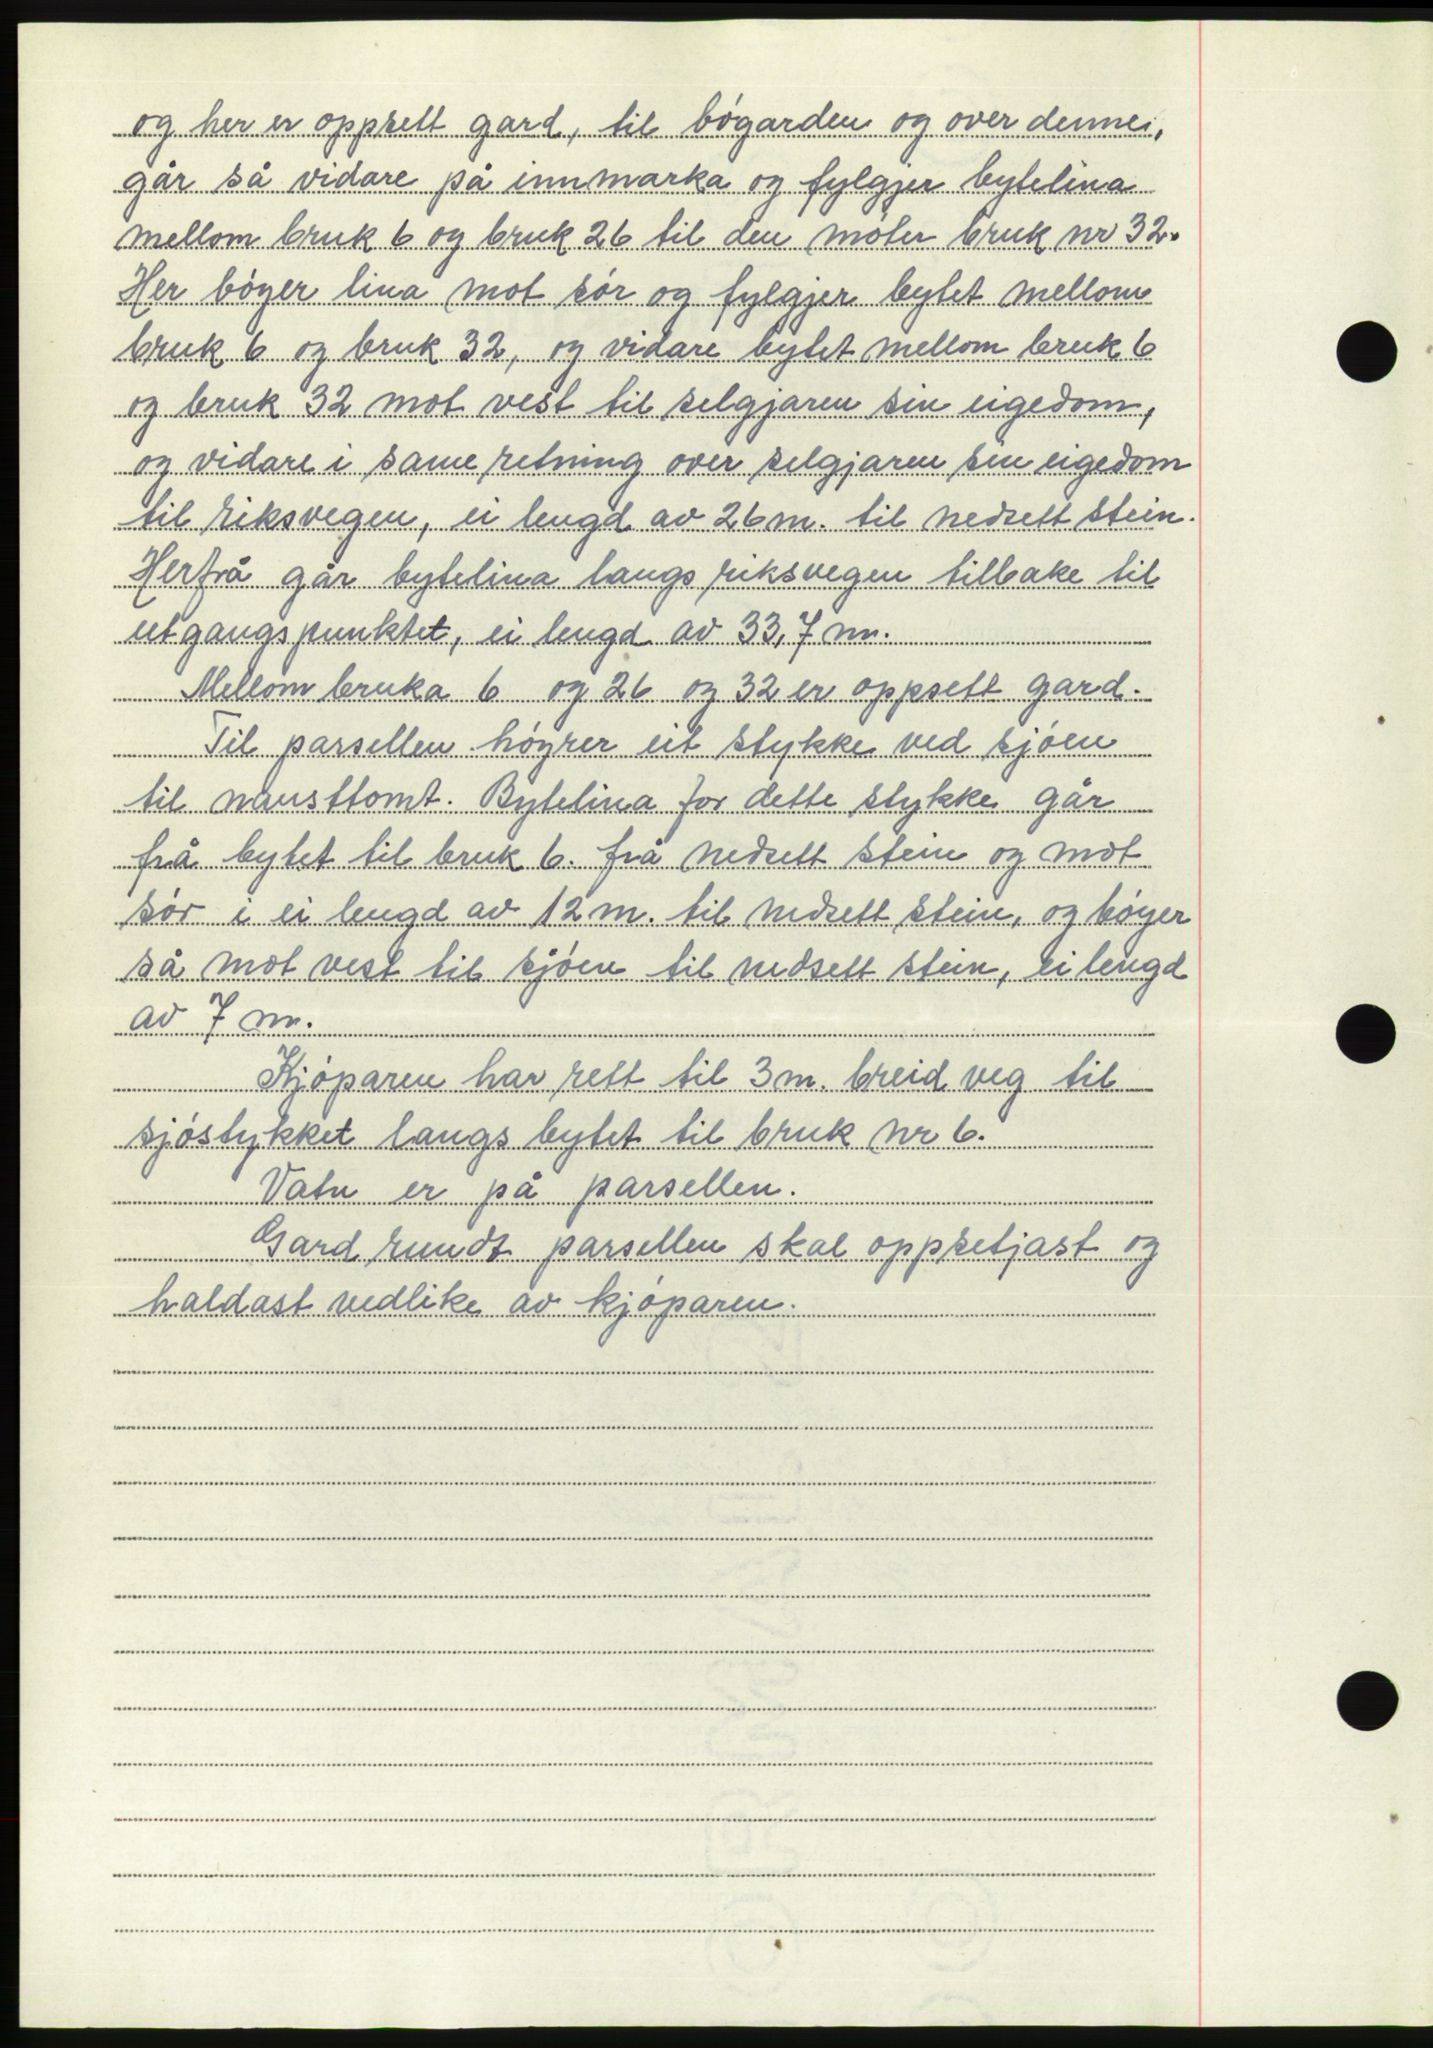 og her er oppsett gard, til bógarden og over denne,
går så vidare på innmarka og fylgjer bytelina
mellom bruk 6 og bruk 26 til den móter bruk nr 32.
Her bóyer lina mot sór og fylgjer bytet mellom
bruk 6 og bruk 32, og vidare bytet mellom bruk 6
og bruk 32 mot vest til selgjaren sin eigedom,
og vidare i same retning over selgjaren sin eigedom
til riksvegen, ei lengd av 26 m. til nedsett stein.
Herfrå går bytelina langs riksvegen tilbake til
utgangspunktet, ei lengd av 33,7 m.
Mellom bruka 6 og 26 og 32 er oppsett gard.
Til parsellen hóyrer eit stykke ved sjóen
til nausttomt. Bytelina for dette stykke går
frå bytet til bruk 6. frå nedsett stein og mot
sór i ei lengd av 12 m. til nedsett stein, og bóyer
så mot vest til sjóen til nedsett stein, ei lengd
av 7 m.
Kjóparen har rett til 3 m. breid veg til
sjóstykket langs bytet til bruk nr 6.
Vatn er på parsellen.
Gard rundt parsellen skal oppsetjast og
haldast vedlike av kjóparen.